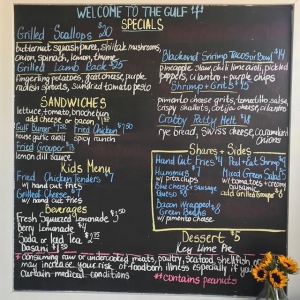 WELCOME TO THE GULF
SPECIALS
Grilled Scallops $20
butternut squash puree, shiitake mushrooms,
onion, spinach, lemon, thyme
Grilled Lamb Rack $25
fingerling potatoes, goat cheese, purple
radish sprouts, sundried tomato pesto
SANDWICHES
lettuce, tomato, brioche bun
add cheese or bacon
Gulf Burger
Fried Chicken
house garlic aioli
spicy ranch
Fried Grouper
lemon dill sauce
Kids Menu
Fried Chicken Tenders $7
w/ hand cut fries
Grilled Cheese
w/ hand cut fries
Beverages
Fresh Squeezed Lemonade
Berry Lemonade $4
Soda or Iced Tea $2.75
Dasani $1.50
Blackened Shrimp Tacos or Bowl $14
pineapple slaw, chili lime aioli, pickled
peppers, cilantro + purple chips
Shrimp + Grits
pimento cheese grits, tomatillo salsa,
crispy shallots, cotija cheese, cilantro
Crabby Patty Melt $18
rye bread, swiss cheese, caramelized
onions
Shares + Sides
Hand Cut Fries $4
Hummus
w/ pita chips
Blue cheese + sausage
Queso
Bacon Wrapped $8
Green Beans
w/ pimento cheese
Peel + Eat Shrimp
Mixed Green Salad
w/ tomatoes + creamy
add Grilled Grouper
Dessert $5
Key Lime Pie
*consuming raw or undercooked meats, poultry, seafood, shellfish or
may increase your risk of foodborn illness especially if you
certain medical conditions
*contains peanuts